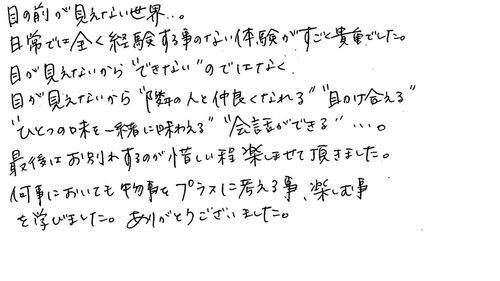 目の前が見えない世界…。
日常では全く経験する事のない体験がすごと貴重でした。
目が見えないから"できない"のではなく
目が見えないから"隣の人と仲良くなれる" "助け合える"
"ひとつの味を一緒に味わえる" "会話ができる" …。
最後はお別れするのが惜しい程 楽しませて頂きました。
何事においても物事をプラスに考える事、楽しむ事
を学びました。ありがとうございました。